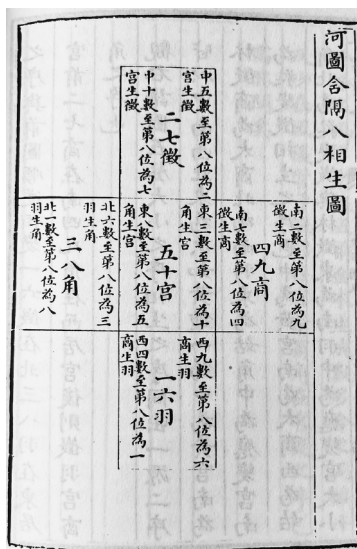 河圖含隔八相生圖
中五數至第八位為二
宮生徵
二七徵
中十數至第八位為七
宮生徵
南二數至第八位為九
徵生商
四九商
南七數至第八位為四
徵生商
東三數至第八位為十
角生宮
五十宮
東八數至第八位為五
角生宮
北六數至第八位為三
羽生角
三八角
北一數至第八位為八
羽生角
西九數至第八位為六
商生羽
一六羽
西四數至第八位為一
商生羽